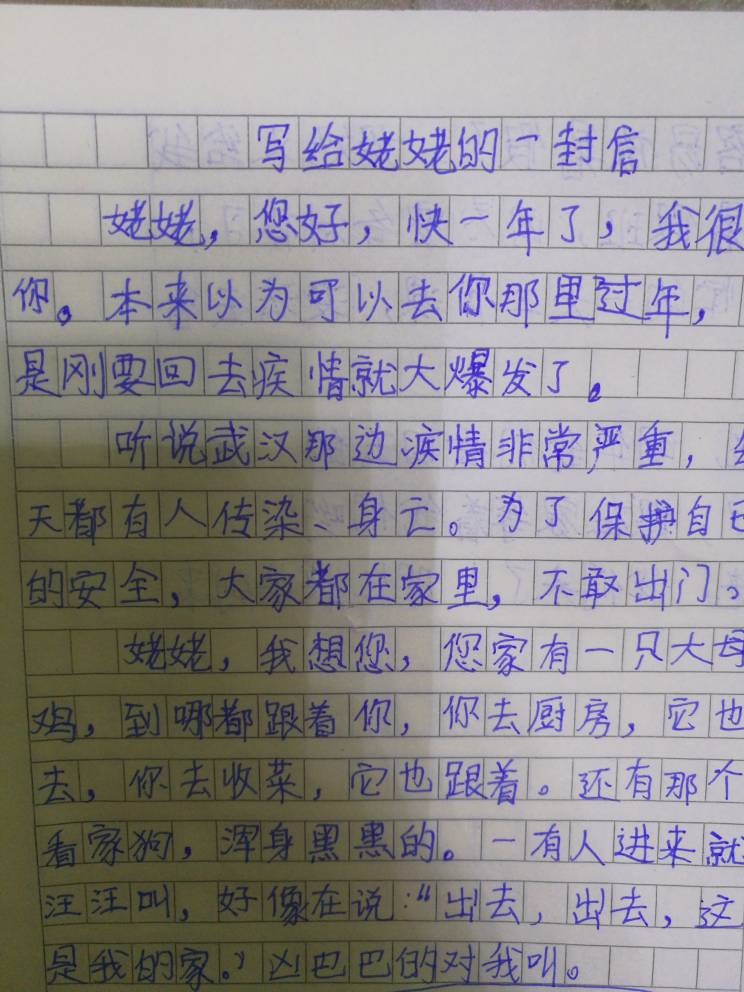 写给姥姥的一封信
姥姥，您好，快一年了，我很
你。本来以为可以去你那里过年，
是刚要回去疾情就大爆发了。
听说武汉那边疾情非常严重，
天都有人传染、身亡。为了保护自己
的安全，大家都在家里，不敢出门。
姥姥，我想您，您家有一只大母
鸡，到哪都跟着你，你去厨房，它也
去，你去收菜，它也跟着。还有那个
看家狗，浑身黑黑的。一有人进来就
汪汪叫，好像在说：“出去，出去，这
是我的家。”凶巴巴的对我叫。